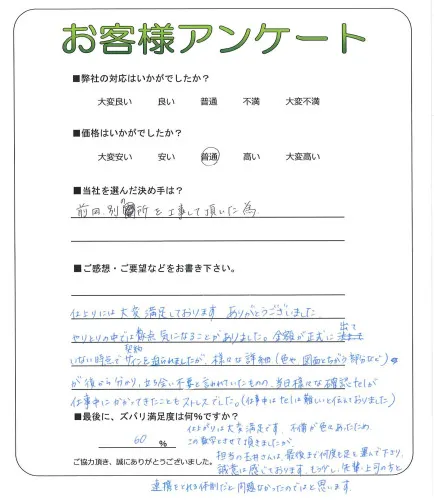 お客様アンケート
■弊社の対応はいかがでしたか?
大変良い 良い 普通 不満 大変不満
■価格はいかがでしたか?
大変安い 安い 普通 高い 大変高い
■当社を選んだ決め手は?
前回、別の箇所を工事して頂いた為
■ご感想・ご要望などをお書き下さい。
仕上りには大変満足しております ありがとうございました
やりとりの中では数点気になることがありました。金額が正式に出て
いない時点で契約サインを迫られましたが、様々な詳細(色や図面とちがう部分など)
が後から分かり、立ち会い不要と言われていたものの、当日様々な確認telが
仕事中にかかってきたこともストレスでした。(仕事中はtelは難しいと伝えておりました)
■最後に、ズバリ満足度は何%ですか?
60 %
仕上がりは大変満足です。不備が色々あったため、
この数字とさせて頂きましたが、
担当の玉井さんは、最後まで何度も足を運んで下さり、
誠意は感じております。もう少し、先輩・上司の方と
連携をとれる体制だと問題なかったのではと思います。
ご協力頂き、誠にありがとうございました。